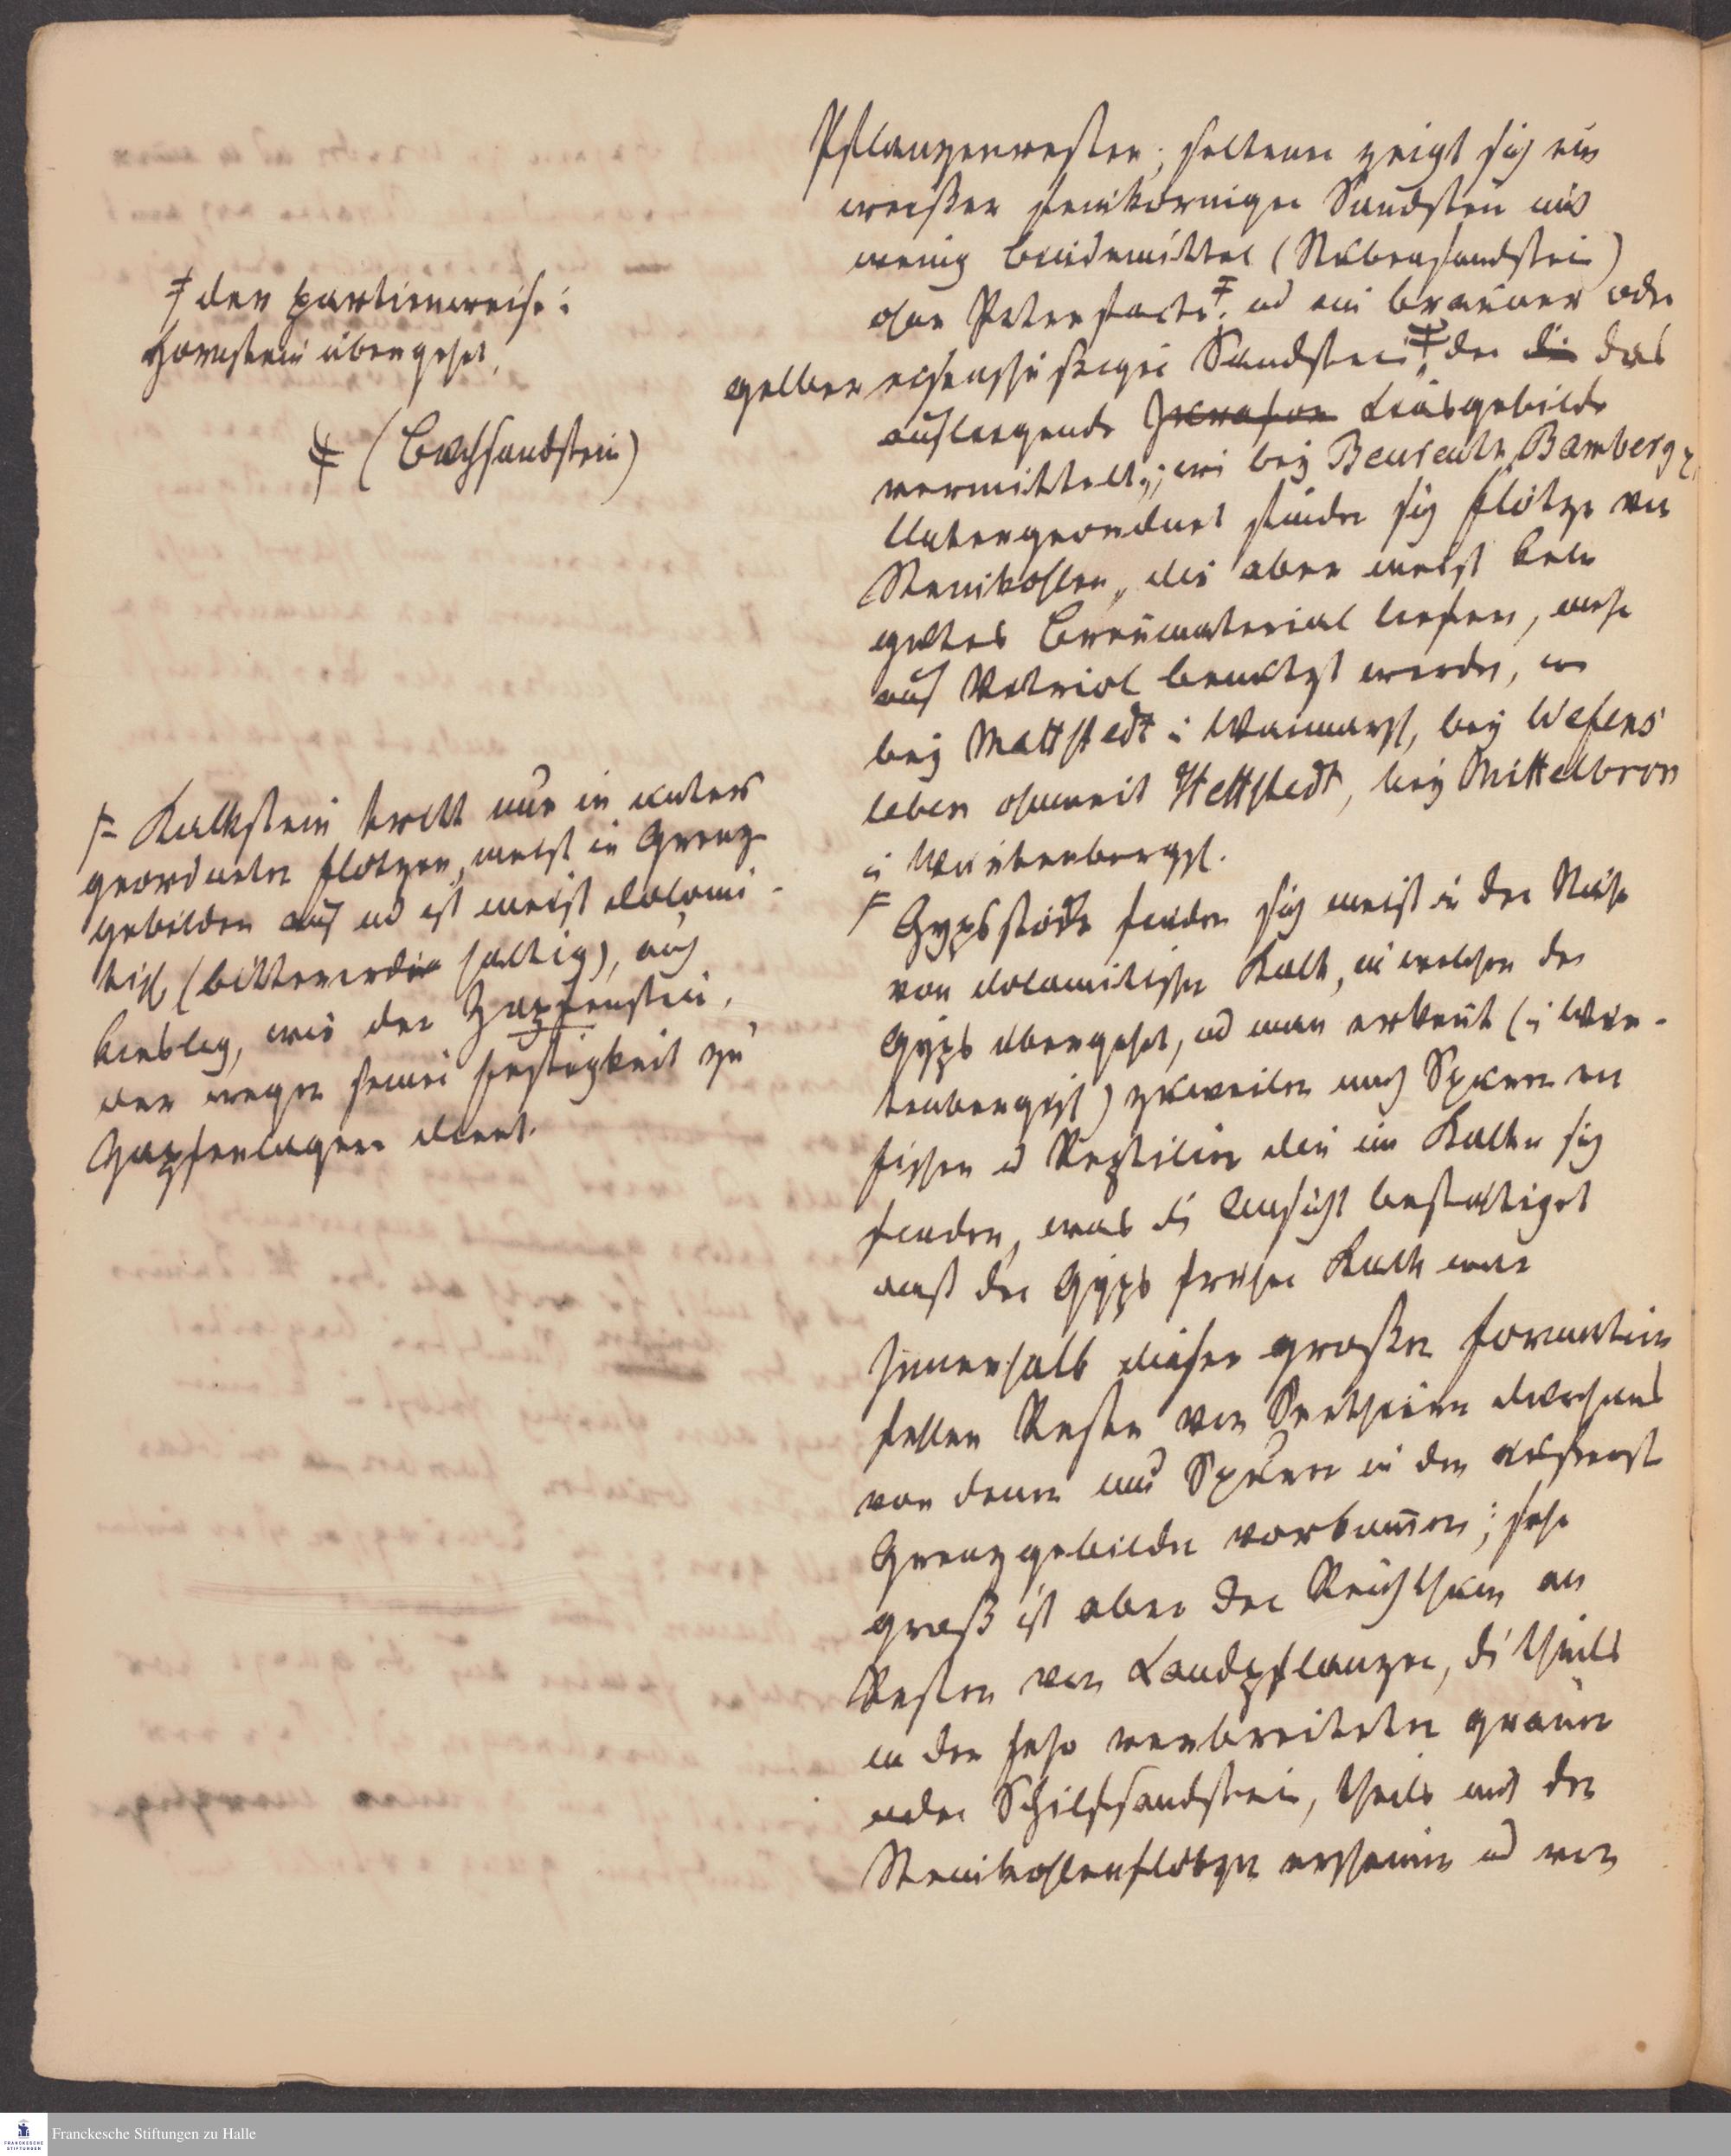 Pflanzenresten; seltener zeigt sich ein
weißer feinkörniger Sandstein mit
wenig Bindemittel (Stubensandstein)
ohne Petrefacte, ud ein brauner oder
gelber eisenschüssiger Sandstein, der die das
aufliegende Liasgebilde
vermittelt; wie bey Beureuth, Bamberg
Untergeordnet finden sich Flötze von
Steinkohlen, die aber meist kein
gutes Brennmaterial liefern, mehr
auf Vitriol benutzt werden, wie
bey Mattstedt i Weimarsch, bey Wefens
leben ohnweit Hettstedt, bey Mittelbron
i Würtenbergsch.
Gypsstöcke finden sich meist in der Nähe
von dolomitischen Kalk, in welchen der
Gyps übergehet, ud man erkent (i Wür-
tenbergisch) zuweilen noch Spuren von
Fischen ud Reptilien die im Kalke sich
finden, was die Ansicht bestätiget
daß der Gyps früher Kalk war
Innerhalb dieser großen Formation
fehlen Reste von Seethieren durchaus
von denen nur Spuren in den äußerst
Grenzgebilden vorkommen; sehr
groß ist aber der Reichthum an
Resten von Landpflanzen, die theils
in den sehr verbreiteten grauen
oder Schilfsandstein, theils mit den
Steinkohlenflötzen erscheinen ud von
ǂ der partienweise i
Hornstein übergehet,
(Buchsandstein)
Kalkstein tritt nur in unter
geordneten Flötzen, meist in Grenz
gebilden auf ud ist meist dolomi-
tisch (bittererde haltig), auch
kieslig, wie der Zapfenstein,
der wegen seiner Festigkeit zu
Zapfenlagern dient.
Franckesche Stiftungen zu Halle
FRANCKESCHE
STIFTUNGEN